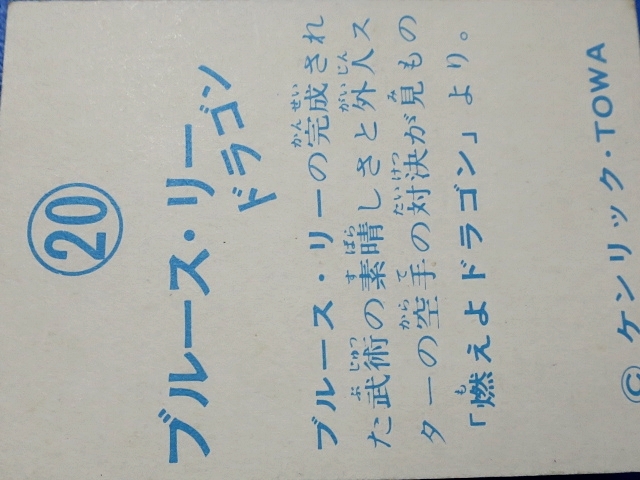 20
ブルース・リー
ドラゴン
ブルース・リーの完成され
た武術の素晴しさと外人ス
ターの空手の対決が見もの
「燃えよドラゴン」より。
©ケンリック・TOWA